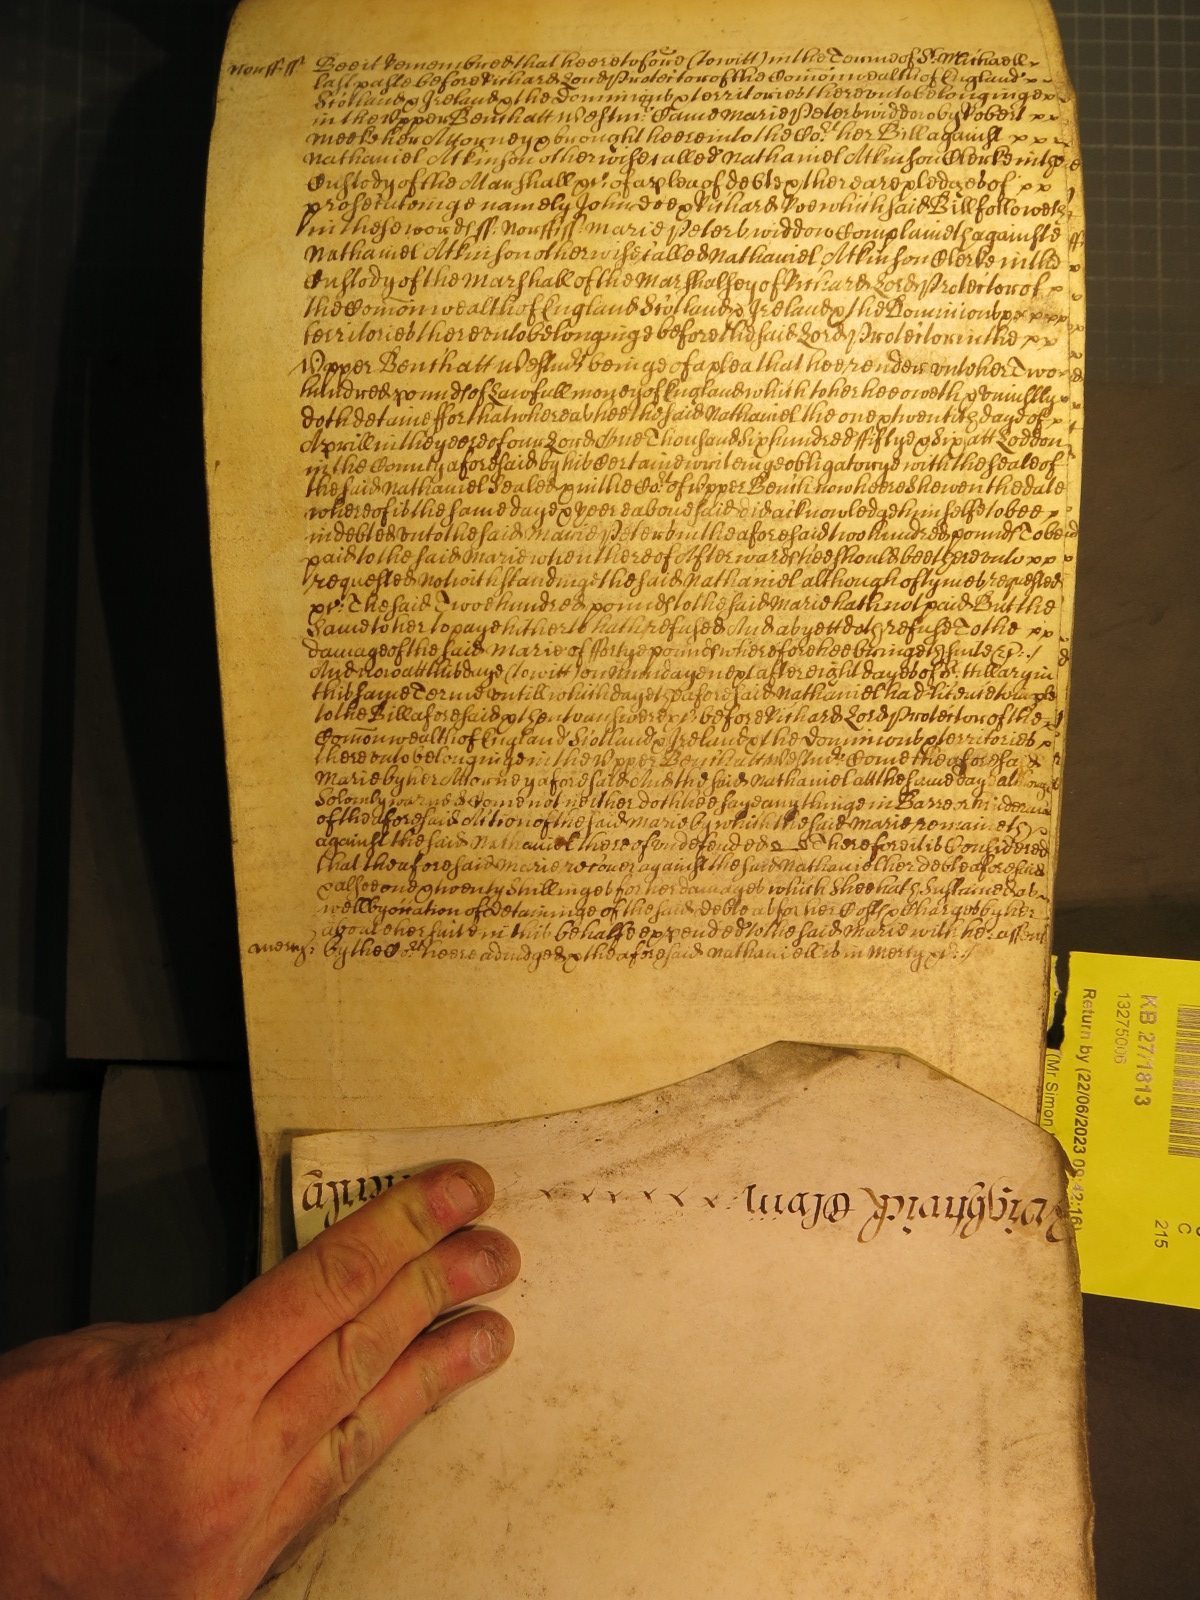 Norff ss Bee it Remembred that heeretofore (to witt) in the Terme of St. Michaell
last paste before Richard Lord Protector of the Comonwealth of England
Scotland & Ireland & the Dominions & territories thereunto belonginge
in the Upper Bench att Westmr. Came Marie Peters widdow by Robert
Meeke her Attorney & brought heere into the Cort. her Bill against
Nathaniel Atkinson otherwise called Nathaniel Atkinson Clerke in the
Custody of the Marshall &c. of a plea of debt & there are pledges of
prosecutinge namely John doe & Richard Roe which said Bill followeth
in these words ss. Norff ss. Marie Peters widdow Complaineth against
Nathaniel Atkinson otherwise called Nathaniel Atkinson Clerke in the
Custody of the Marshall of the Marshalsey of Richard Lord Protector of
the Comonwealth of England Scotland & Ireland & the Dominions &
territories thereunto belonginge before the said Lord Protector in the
Upper Bench att Westmr. beinge of a plea that hee render unto her Two
hundred pounds of Lawfull money of England which to her hee oweth & uniustly
doth detaine ffor that whereas hee the said Nathaniel the one & twentith day of
Aprill in the yeere of our Lord One Thousand six hundred ffiftye & six att Loddon
in the County aforesaid by his Certaine writeinge obligatorye with the seale of
the said Nathaniel Sealed & in the Cort. of Upper Bench now heere shewen the date
whereof is the same daye & yeere above said did acknowledge himselfe to bee
indebted unto the said Marie Peters in the aforesaid two hundred pounds To be
paid to the said Marie when thereof Afterwards hee should bee thereunto
requested Notwithstandinge the said Nathaniel although oftymes requested
&c. The said Two hundred pounds to the said Marie hath not paid But the
Same to her to paye hitherto hath refused And as yett doth refuse To the
damage of the said Marie of ffortye pounds wherefore hee bringeth suite &c.
And now att this daye (to witt) on Munday next after eight dayes of St. Hillary in
this same Terme untill which daye the aforesaid Nathaniel had licence to imparle
to the Bill aforesaid & then to answere &c. before Richard Lord Protector of the
Comonwealth of England Scotland & Ireland & the dominions & territories
thereunto belonginge in the Upper Bench att Westmr. Come the aforesaid
Marie by her Attorney aforesaid And the said Nathaniel att the same day although
Solemly warned Come not neither doth hee saye any thinge in Barre or hinderance
of the aforesaid Action of the said Marie by which the said Marie remaineth
against the said Nathaniel thereof undefended Therefore it is Considered
that the aforesaid Marie recover against the said Nathaniel her debt aforesaid
& alsoe one & twenty Shillinges for her damages which Shee hath Sustained as
well by occation of detaininge of the said debt as for her Costs & charges by her
about her suite in this behalfe expended to the said Marie with her assent
a mercy: by the Cort. heere adiudged & the aforesaid Nathaniell is in Mercy &c.
Wightwick Chvm
KB 27/1813
13275006
Return by (22/06/2023 09:42:16)
(Mr Simon
C
215